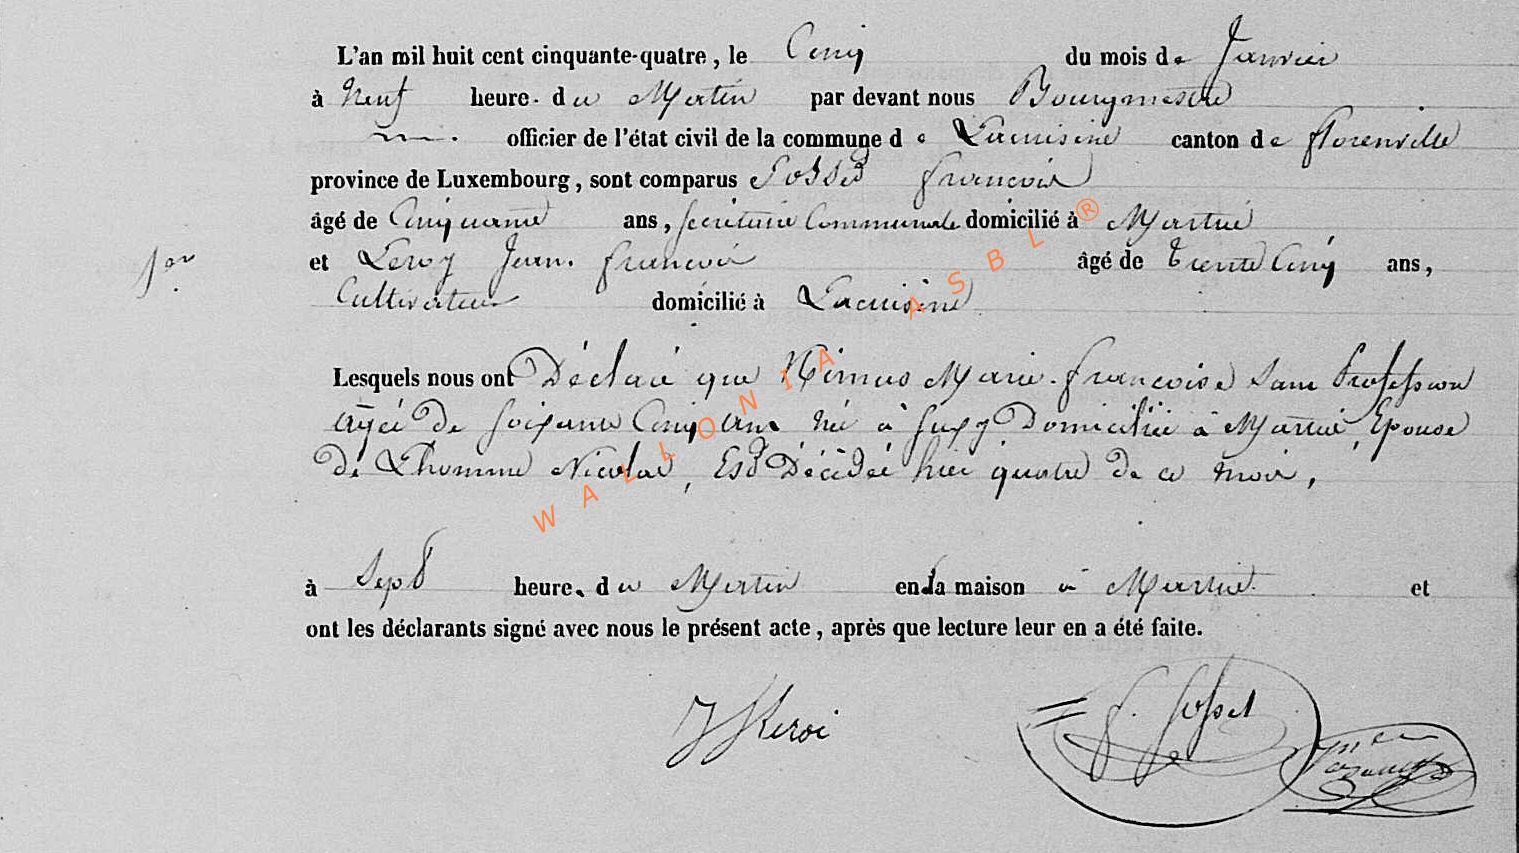 L'an mil huit cent cinquante-quatre, le Cinq du mois de Janvier
à Neuf heure. du Matin par devant nous Bourgmestre
officier de l'état civil de la commune de Lacuisine canton de florenville
province de Luxembourg, sont comparus françois
âgé de Cinquante ans, secrétaire Communale domicilié à Martué
1er et Leroy Jean. françois âgé de trente Cinq ans,
Cultivateur domicilié à Lacuisine
Lesquels nous ont Déclaré que Marie. françoise Sans Profession
agée De soixante Cinq ans née à Suxy Domiciliée à Martué, Epouse
De Lhomme Nicolas, Est Décédée hier quatre de ce mois,
à Sept heure. du Matin en la maison à Martué. et
ont les déclarants signé avec nous le présent acte, après que lecture leur en a été faite.
WALLONIA ASBL ®